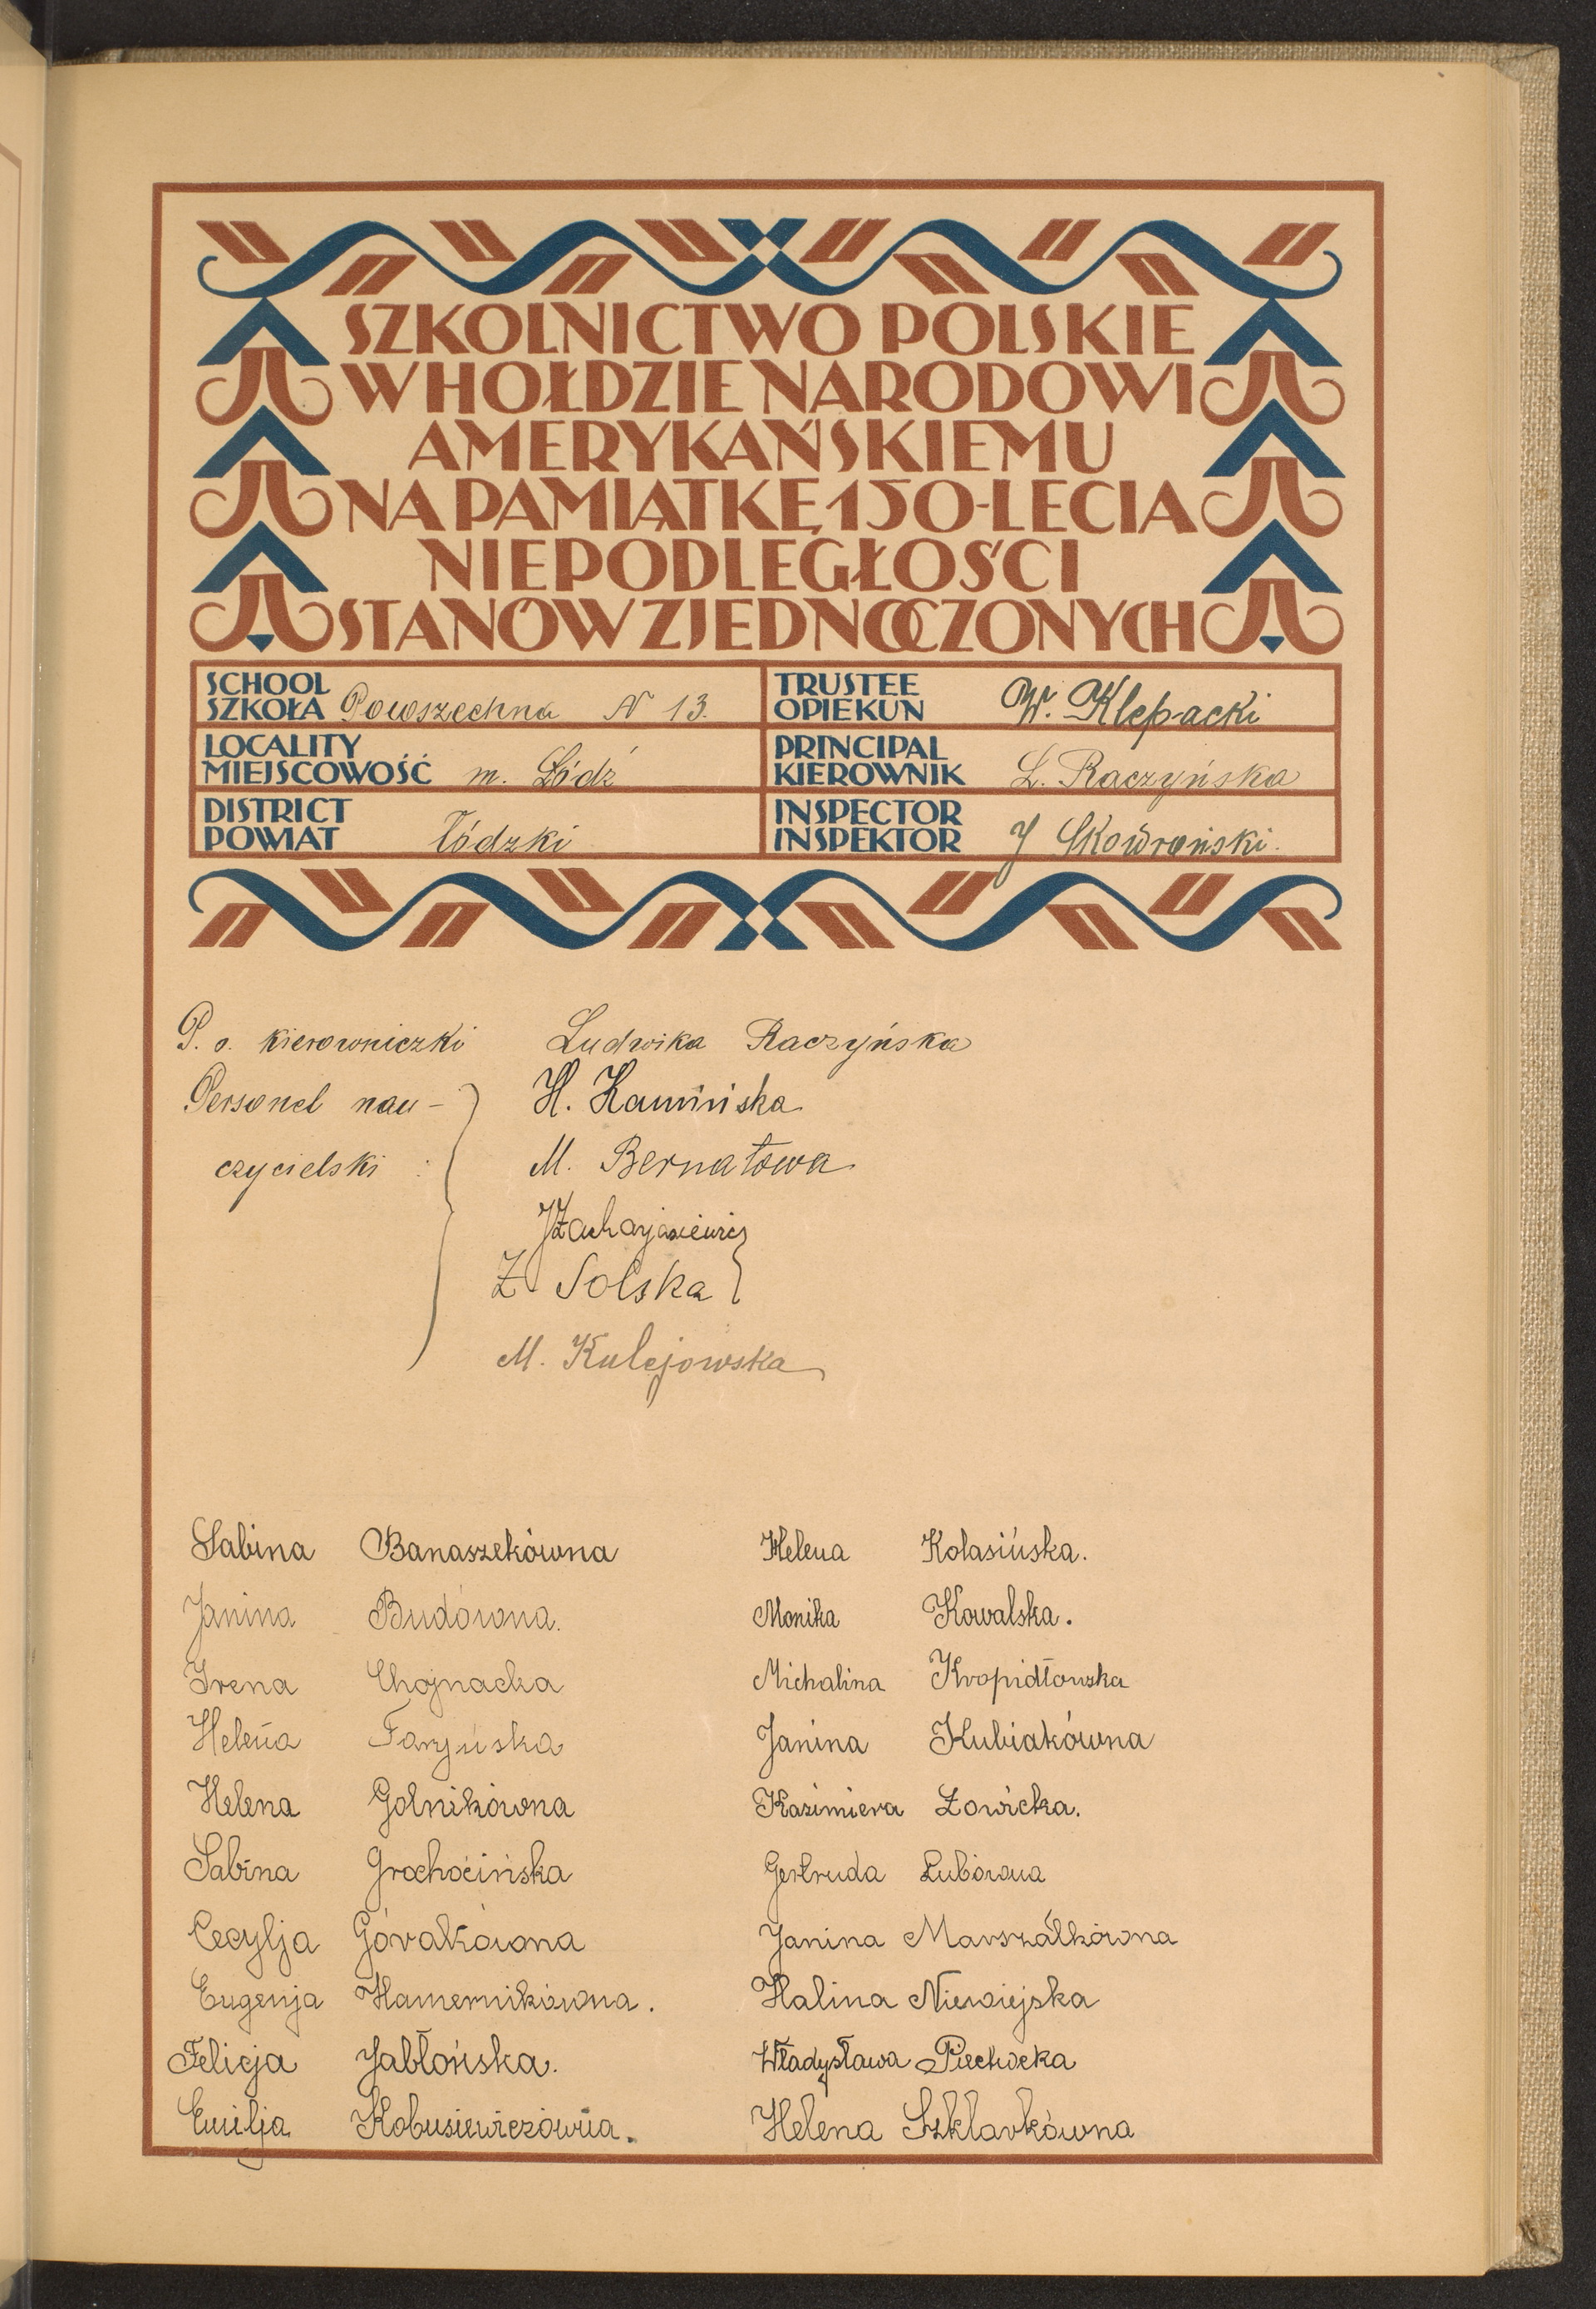 SZKOLNICTWO POLSKIE
W HOŁDZIE NARODOWI
AMERYKAŃSKIEMU
NA PAMIĄTKĘ 150-LECIA
NIEPODLEGŁOŚCI
STANÓW ZJEDNOCZONYCH
SCHOOL
SZKOŁA Powszechna N 13.
TRUSTEE
OPIEKUN W. Klepacki
LOCALITY
MIEJSCOWOŚĆ m. Łódź
PRINCIPAL
KIEROWNIK L. Raczyńska
DISTRICT
POWIAT łódzki
INSPECTOR
INSPEKTOR J Skowroński.
P. o. kierowniczki Ludwika Raczyńska
Personel nau- H. Kamińska
czycielski : M. Bernatowa
JZacharjasiewicz
Z Solska
M. Kulejowska
Sabina Banaszekówna
Janina Budówna.
Irena Chojnacka
Helena Faryńska
Helena Golnikówna
Sabina Grochocińska
Cecylja Górakówna
Eugenja Hamernikówna.
Felicja Jabłońska.
Emilja Kobusiewiczówna.
Helena Kolasińska.
Monika Kowalska.
Michalina Kropidłowska
Janina Kubiakówna
Kazimiera Łowicka.
Gertruda Lubówna
Janina Marszałkówna
Halina Niewiejska
Władysława Piechocka
Helena Szklarkówna